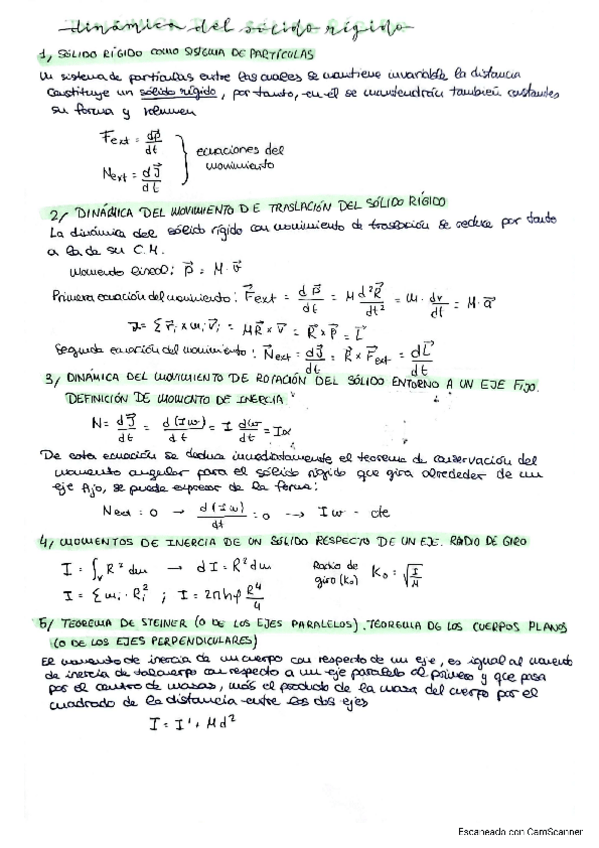 dinámica del sólido rígido
1/ SÓLIDO RÍGIDO COMO SISTEMA DE PARTÍCULAS
Un sistema de partículas entre las cuales se mantiene invariable la distancia
constituye un sólido rígido, por tanto, en él se mantendrán también constantes
su forma y volumen
F⃗ext = dp⃗/dt
N⃗ext = dJ⃗/dt
ecuaciones del
movimiento
2/ DINÁMICA DEL MOVIMIENTO DE TRASLACIÓN DEL SÓLIDO RÍGIDO
La dinámica del sólido rígido con movimiento de traslación se reduce por tanto
a la de su C.M.
Momento lineal: p⃗ = M · v⃗
Primera ecuación del movimiento: F⃗ext = dp⃗/dt = M d²R⃗/dt² = M · dv/dt = M · a⃗
J = Σ r⃗i × mi v⃗i = MR⃗ × v⃗ = R⃗ × P⃗ = L⃗
Segunda ecuación del movimiento: N⃗ext = dJ⃗/dt = R⃗ × F⃗ext = dL⃗/dt
3/ DINÁMICA DEL MOVIMIENTO DE ROTACIÓN DEL SÓLIDO ENTORNO A UN EJE FIJO.
DEFINICIÓN DE MOMENTO DE INERCIA.
N = dJ⃗/dt = d(Iω)/dt = I dω/dt = Iα
De esta ecuación se deduce inmediatamente el teorema de conservación del
momento angular para el sólido rígido que gira alrededor de un
eje fijo, se puede expresar de la forma:
Next = 0 → d(Iω)/dt = 0 --> Iω - cte
4/ MOMENTOS DE INERCIA DE UN SÓLIDO RESPECTO DE UN EJE. RADIO DE GIRO
I = ∫v R² dm → dI = R² dm
Radio de
giro (K₀) K₀ = √(I/M)
I = Σ mi · Ri² ; I = 2πhρ R⁴/4
5/ TEOREMA DE STEINER (O DE LOS EJES PARALELOS). TEOREMA DE LOS CUERPOS PLANOS
(O DE LOS EJES PERPENDICULARES)
El momento de inercia de un cuerpo con respecto de un eje, es igual al momento
de inercia de tal cuerpo con respecto a un eje paralelo al primero y que pasa
por el centro de masas, más el producto de la masa del cuerpo por el
cuadrado de la distancia entre los dos ejes
I = I' + Md²
Escaneado con CamScanner